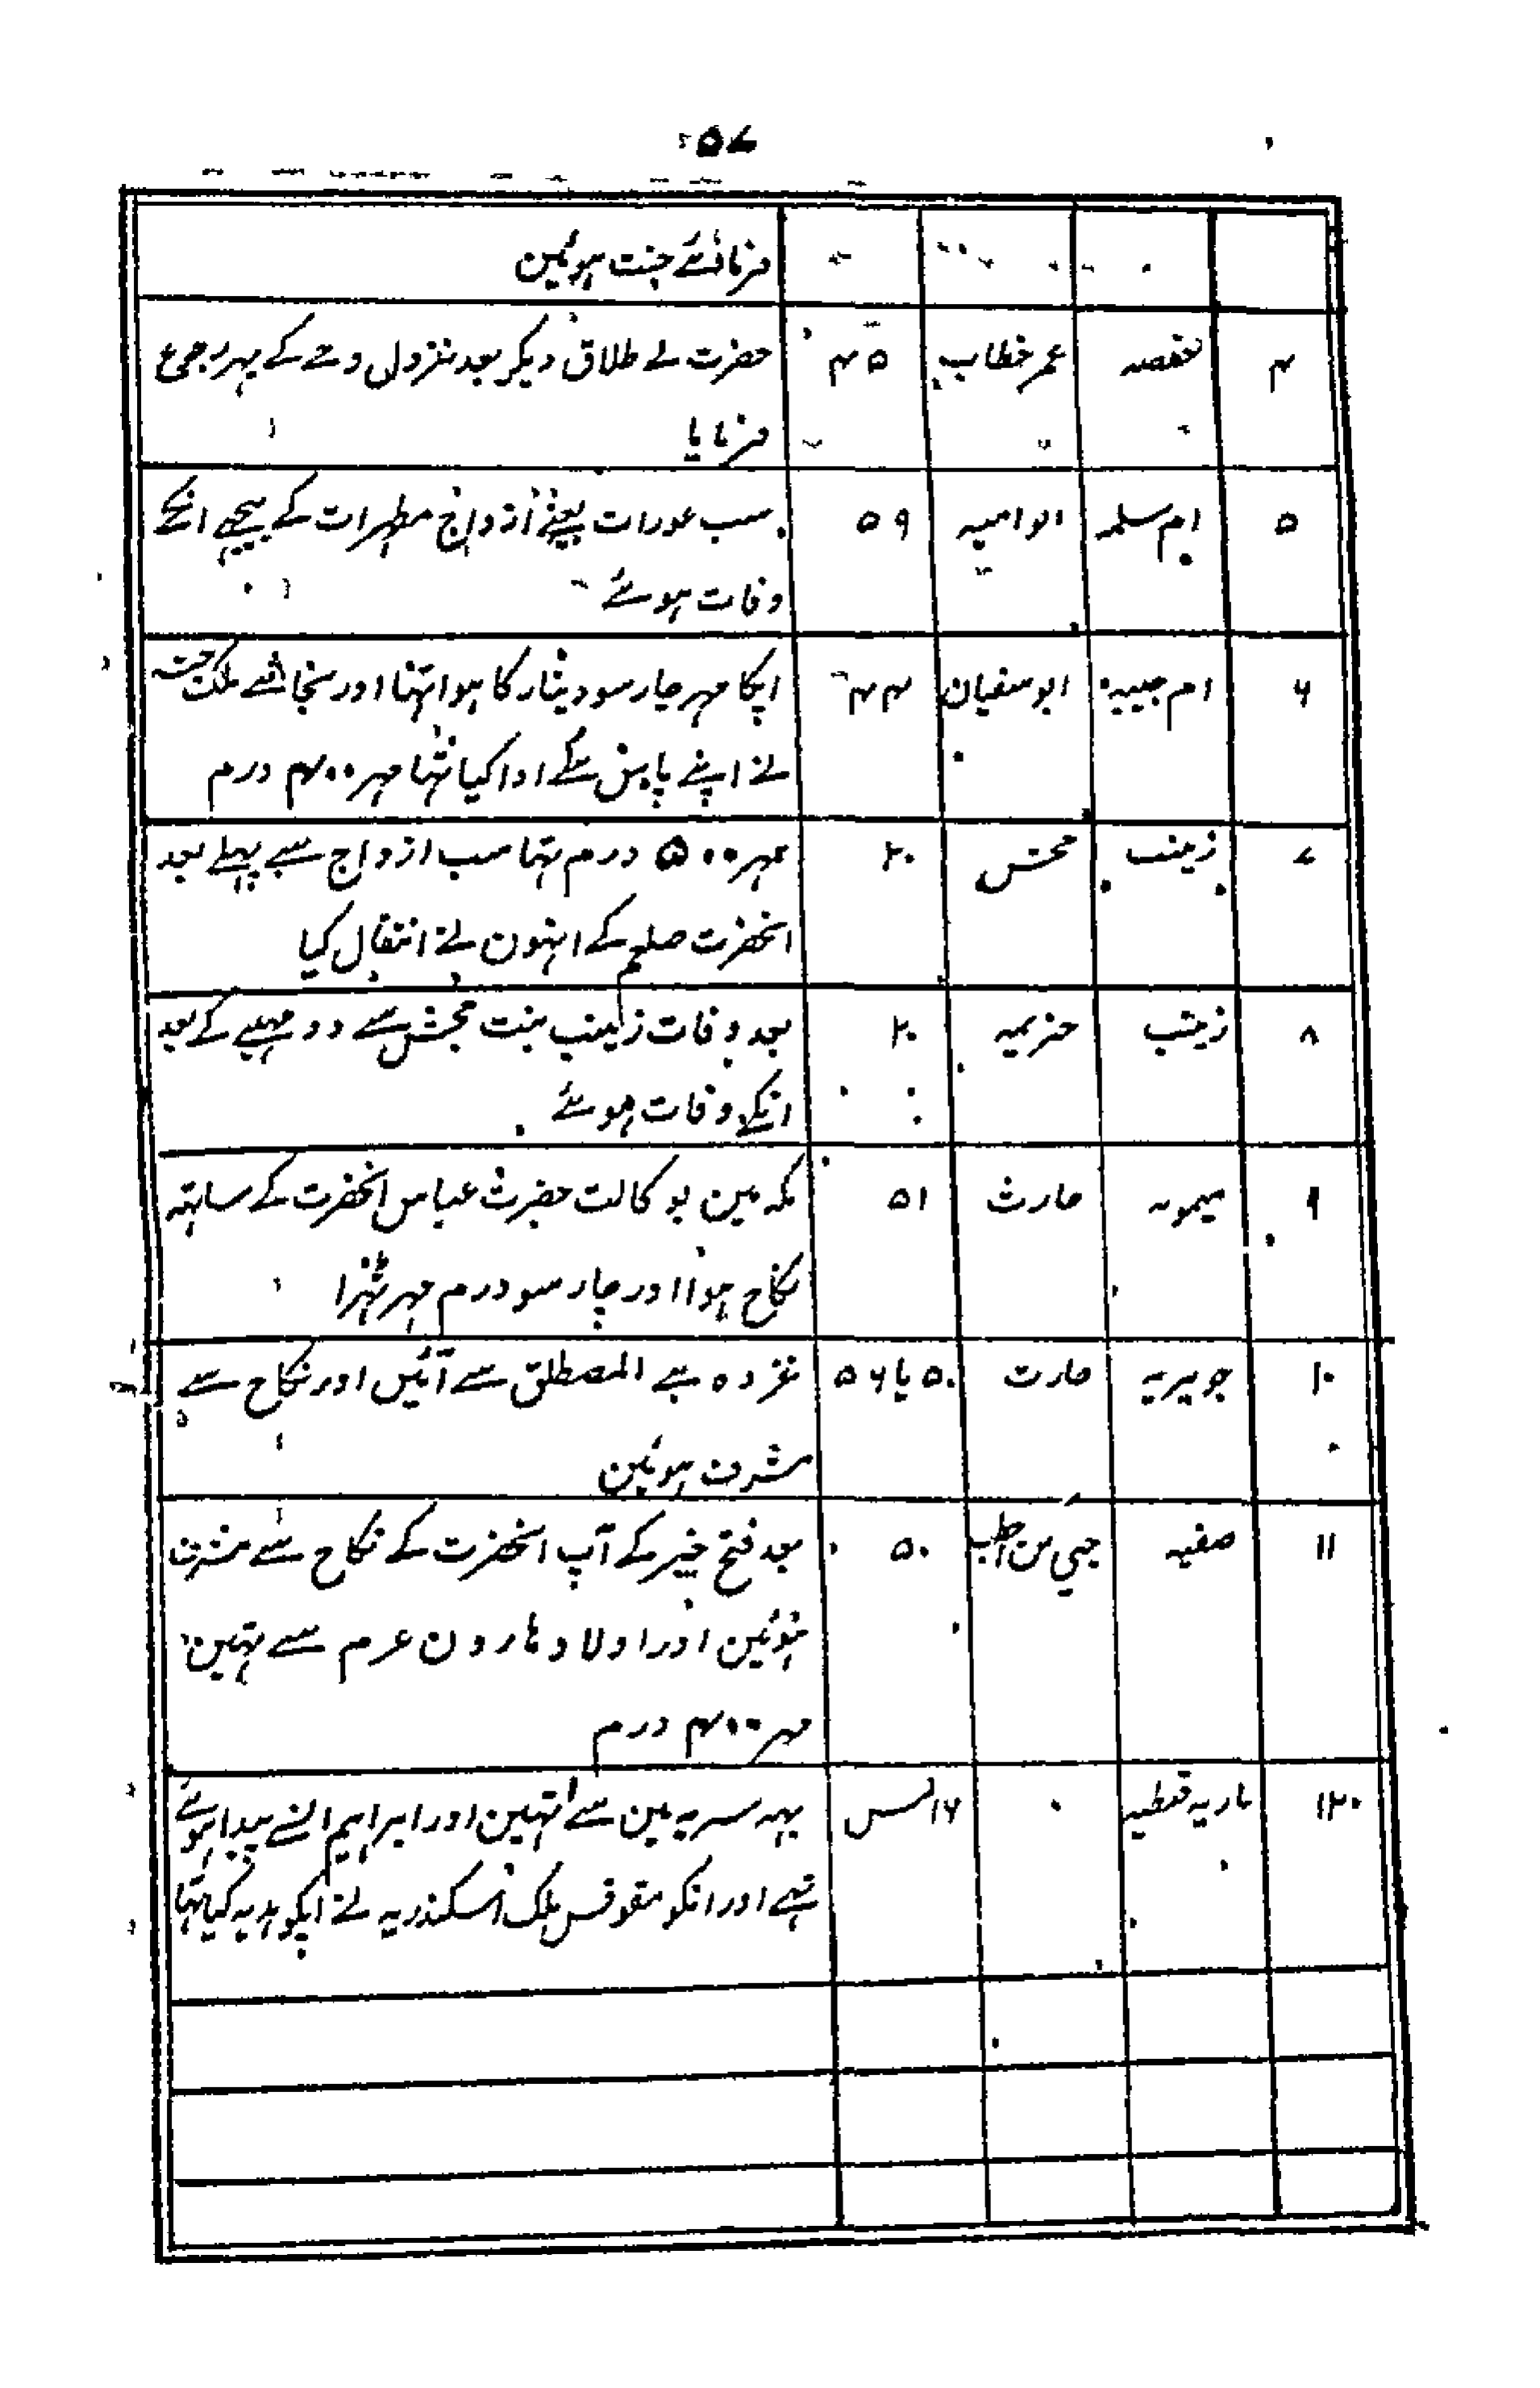 ۵۷
فرمائے جنت ہوئین
۴ حفصہ عمر خطاب ۴۵ حضرت نے طلاق دیکر بعد نزول وحے کے پہر رجوع
فرمایا
۵ ام سلمہ ابو امیہ ۵۹ سب عورات یعنے ازواج مطہرات کے پیچہے انکے
وفات ہوئے
۶ ام حبیبہ ابو سفیان ۴۴ اپکا مہر چار سو دینار کا ہوا تہا اور نجاشے ملک حبشہ
نے اپنے پاس سے ادا کیا تہا مہر ۴۰۰ درم
۷ زینب جحش ۲۰ مہر ۵۰۰ درم تہا سب ازواج سے پہلے بعد
انحضرت صلعم کے انہون نے انتقال کیا
۸ زینب خزیمہ ۲۰ بعد وفات زینب بنت جحش سے دو مہینے کے بعد
انکے وفات ہوئے
۹ میمونہ حارث ۵۱ مکہ مین بوکالت حضرت عباس انحضرت کے ساتہہ
نکاح ہوا اور چار سو درم مہر ٹہرا
۱۰ جویریہ حارث ۵۰ یا ۵۶ غزوہ بنے المصطلق سے آئیں اور نکاح سے
مشرف ہوئین
۱۱ صفیہ حیی بن اخطب ۵۰ بعد فتح خیبر کے آپ انحضرت کے نکاح سے مشرف
ہوئین اور اولاد ہارون عرم سے تہین
مہر ۴۰۰ درم
۱۲ ماریہ قبطیہ ۱۶ یہہ سریہ مین سے تہین اور ابراہیم انسے پیدا ہوئے
تہے اور انکو مقوقس ملک اسکندریہ نے اپکو ہدیہ کیا تہا